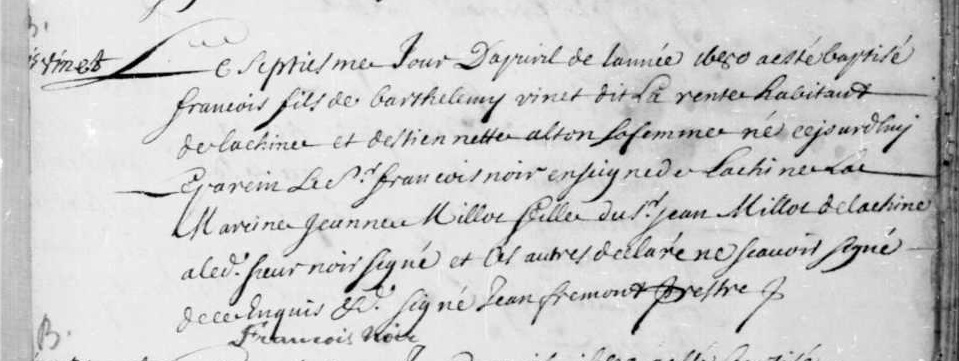 B.
vinet
Le septiesme Jour Dapvril de lannée 1680 a esté baptisé
francois fils de barthelemy vinet dit La rente habitant
de lachine et destiennette alton sa femme né cejourdhuy
Le parein Le Sr. francois noir enseigne de Lachine La
Mareine Jeanne Millot fille du Sr. Jean Millot de lachine
a led. sieur noir signé et les autres declaré ne scavoir signé
de ce Enquis &c. signé Jean fremont prestre
Francois Noir
B.